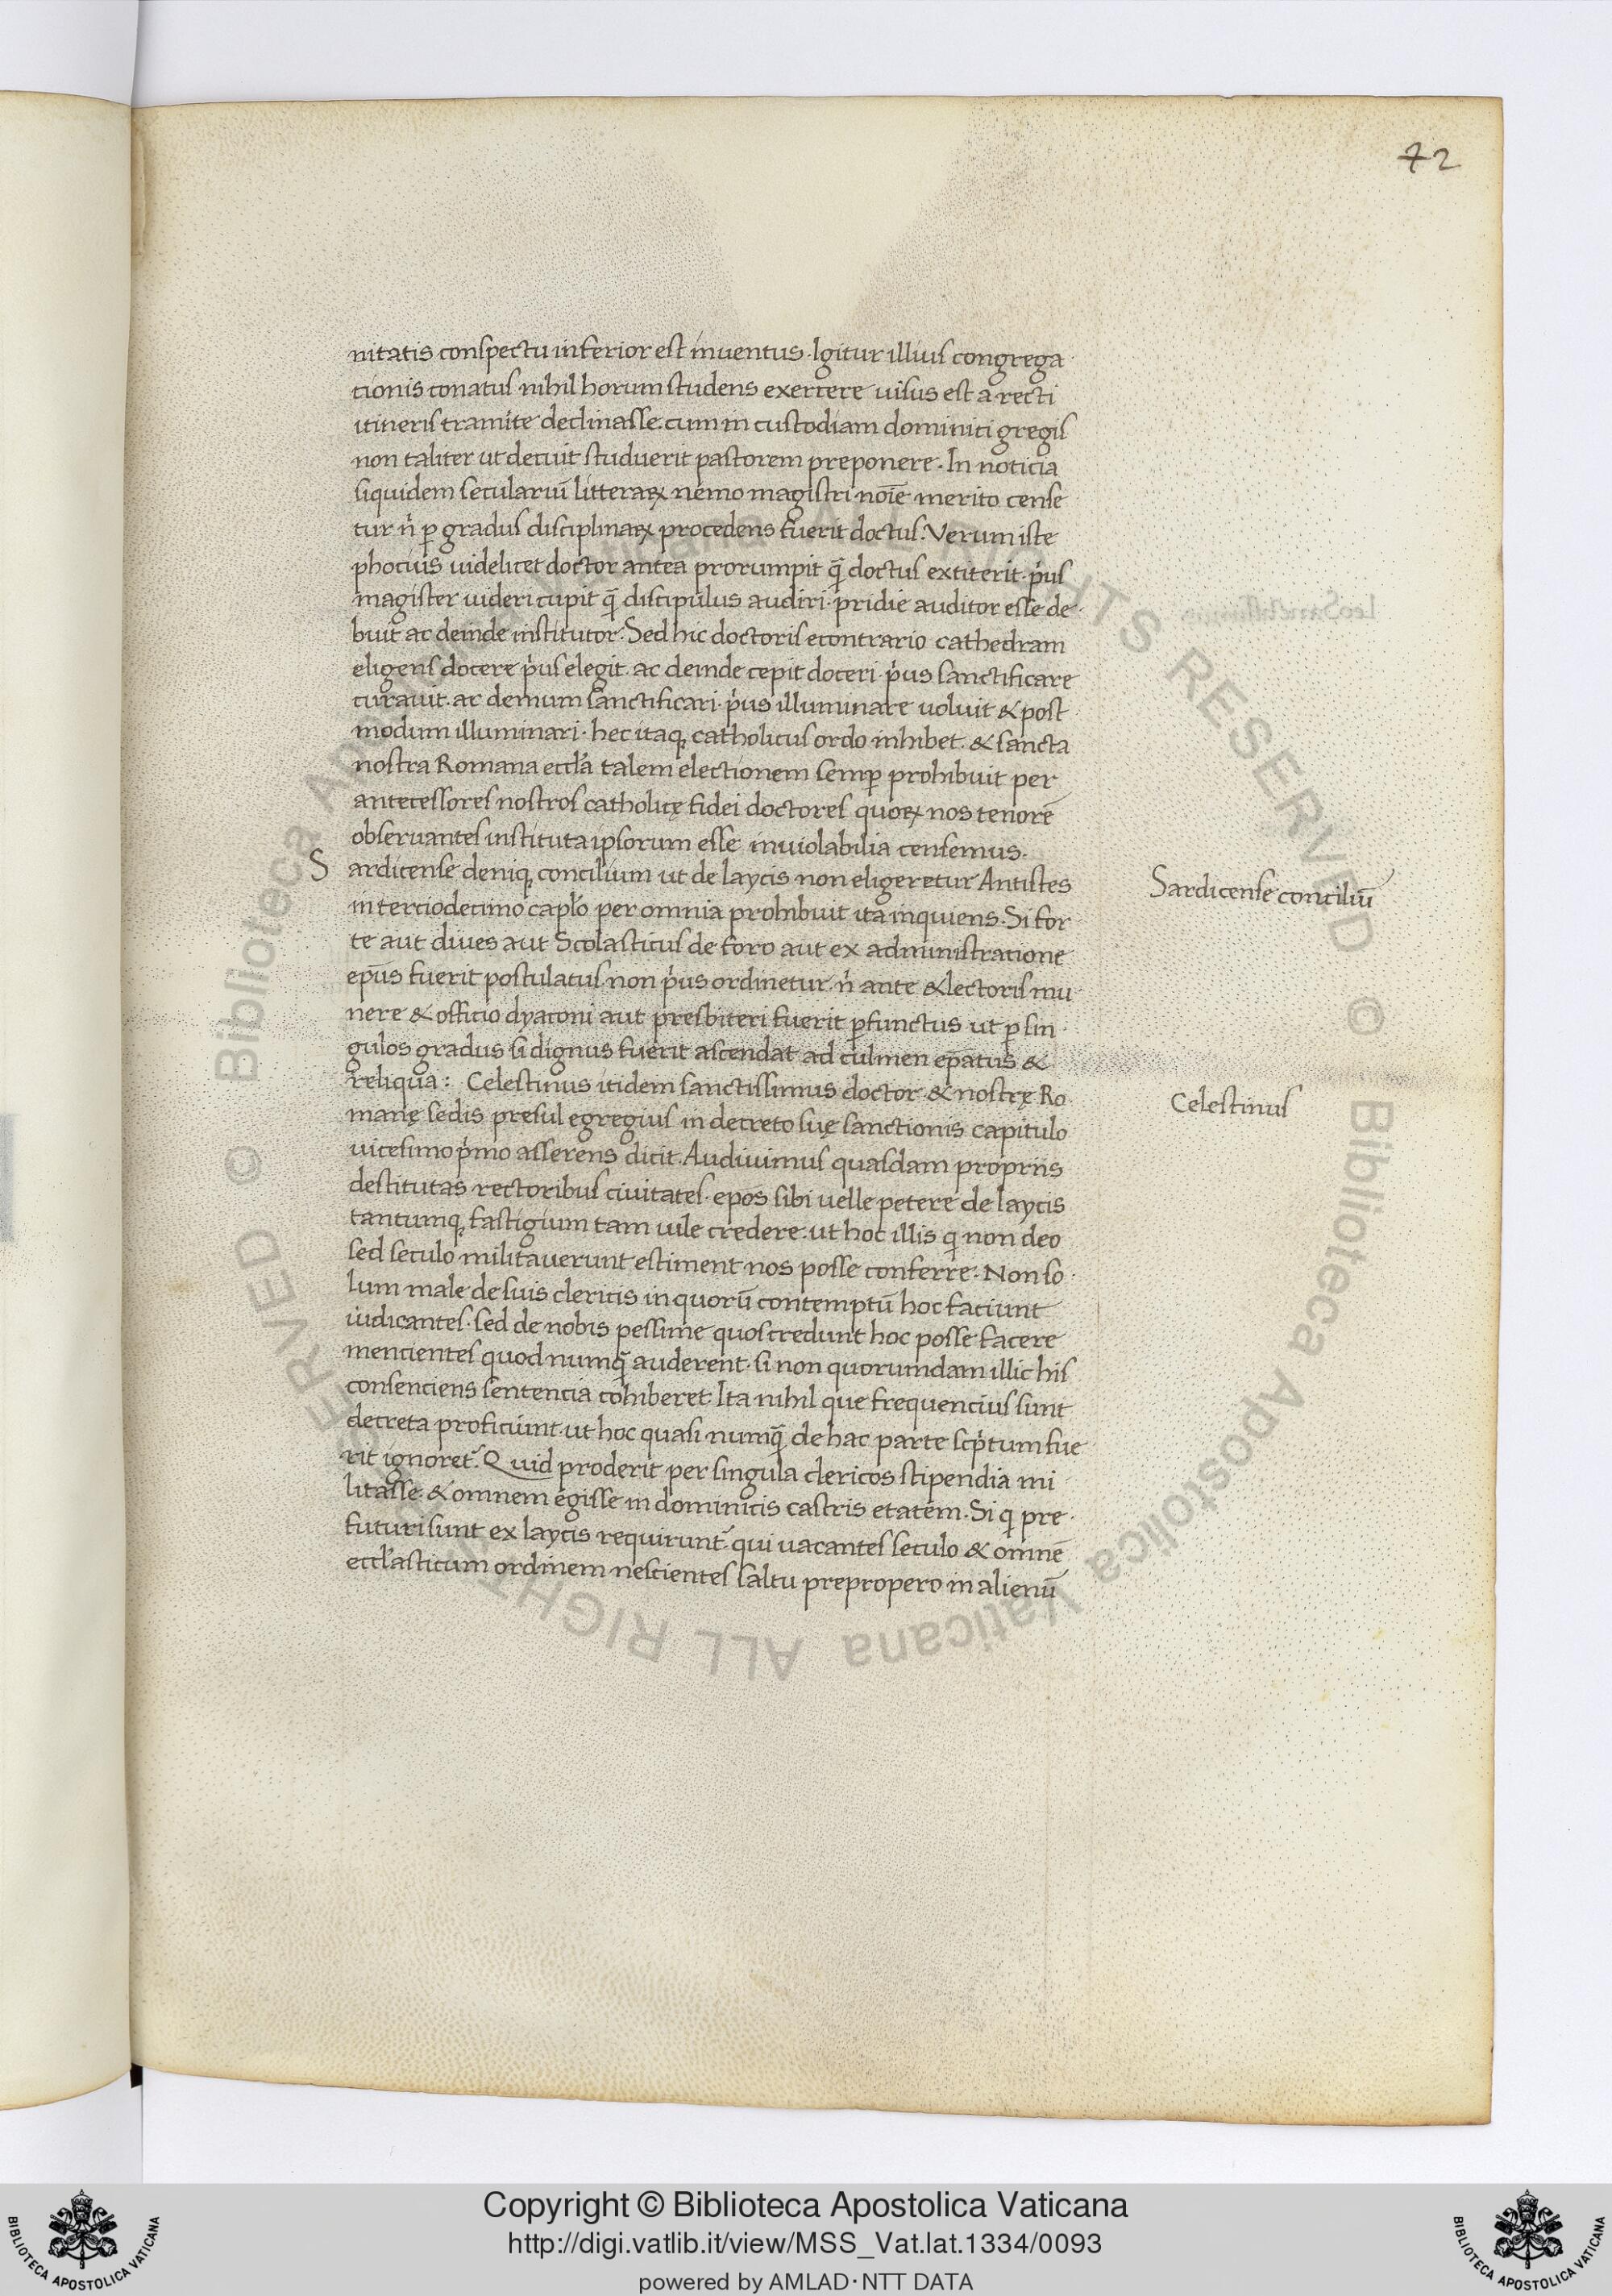 72
nitatis conspectu inferior est inuentus. Igitur illius congrega
tionis conatus nihil horum studens exercere uisus est a recti
itineris tramite declinasse. cum in custodiam dominici gregis
non taliter ut decuit studuerit pastorem preponere. In noticia
siquidem seculariū litteraꝝ nemo magistri noīe merito cense
tur n̍ ꝑ gradus disciplinaꝝ procedens fuerit doctus. Verum iste
phocius uidelicet doctor antea prorumpit q̄ doctus extiterit. p̍us
magister uideri cupit q̄ discipulus audiri. pridie auditor esse de
buit ac deinde institutor. Sed hic doctoris econtrario cathedram
eligens docere p̍us elegit. ac deinde cepit doceri. p̍us sanctificare
curauit. ac demum sanctificari. p̍us illuminare uoluit & post
modum illuminari. hec itaq; catholicus ordo inhibet. & sancta
nostra Romana eccl̄a talem electionem semꝑ prohibuit per
antecessores nostros catholicę fidei doctores quoꝝ nos tenorē
obseruantes instituta ipsorum esse inuiolabilia censemus.
S ardicense deniq; concilium ut de laycis non eligeretur Antistes
in terciodecimo capl̄o per omnia prohibuit ita inquiens. Si for
te aut diues aut Scolasticus de foro aut ex administratione
ep̄us fuerit postulatus non p̍us ordinetur. n̍ ante & lectoris mu
nere & officio dyaconi aut presbiteri fuerit ꝑfunctus ut ꝑ sin
gulos gradus si dignus fuerit ascendat ad culmen ep̄atus &
reliqua: Celestinus itidem sanctissimus doctor & nostrę Ro
manę sedis presul egregius in decreto suę sanctionis capitulo
uicesimo p̍mo asserens dicit. Audiuimus quasdam propriis
destitutas rectoribus ciuitates. ep̄os sibi uelle petere de laycis
tantumq; fastigium tam uile credere. ut hoc illis q̍ non deo
sed seculo militauerunt estiment nos posse conferre. Non so
lum male de suis clericis in quorū contemptū hoc faciunt
iudicantes. sed de nobis pessime quos credunt hoc posse facere
mencientes quod numq̄ auderent. si non quorumdam illic his
consenciens sentencia cohiberet. Ita nihil que frequencius sunt
decreta proficiunt. ut hoc quasi numq̄ de hac parte scp̍tum fue
rit ignoret᷑. Quid proderit per singula clericos stipendia mi
litasse. & omnem egisse in dominicis castris etatem. Si q̍ pre
futuri sunt ex laycis requirunt᷑. qui uacantes seculo & omnē
eccl̄asticum ordinem nescientes saltu prepropero in alienū
Sardicense conciliū
Celestinus
© Biblioteca Apostolica Vaticana ALL RIGHTS RESERVED © Biblioteca Apostolica Vaticana ALL RIGHTS RESERVED
Copyright © Biblioteca Apostolica Vaticana
http://digi.vatlib.it/view/MSS_Vat.lat.1334/0093
powered by AMLAD·NTT DATA
BIBLIOTECA APOSTOLICA VATICANA
BIBLIOTECA APOSTOLICA VATICANA